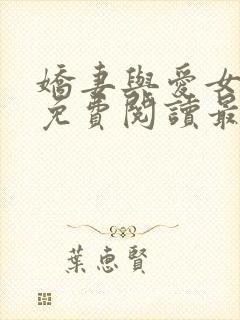 嬌妻與愛女
免費閱讀最
葉惠賢